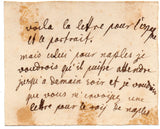 voila la lettre pour l'espagne
et le portrait.
mais celui pour naples je
voudrois qu'il puisse attendre
jusqu'a demain soir et je voudrois
que vous m'envoyiez une
lettre pour le roy de naples